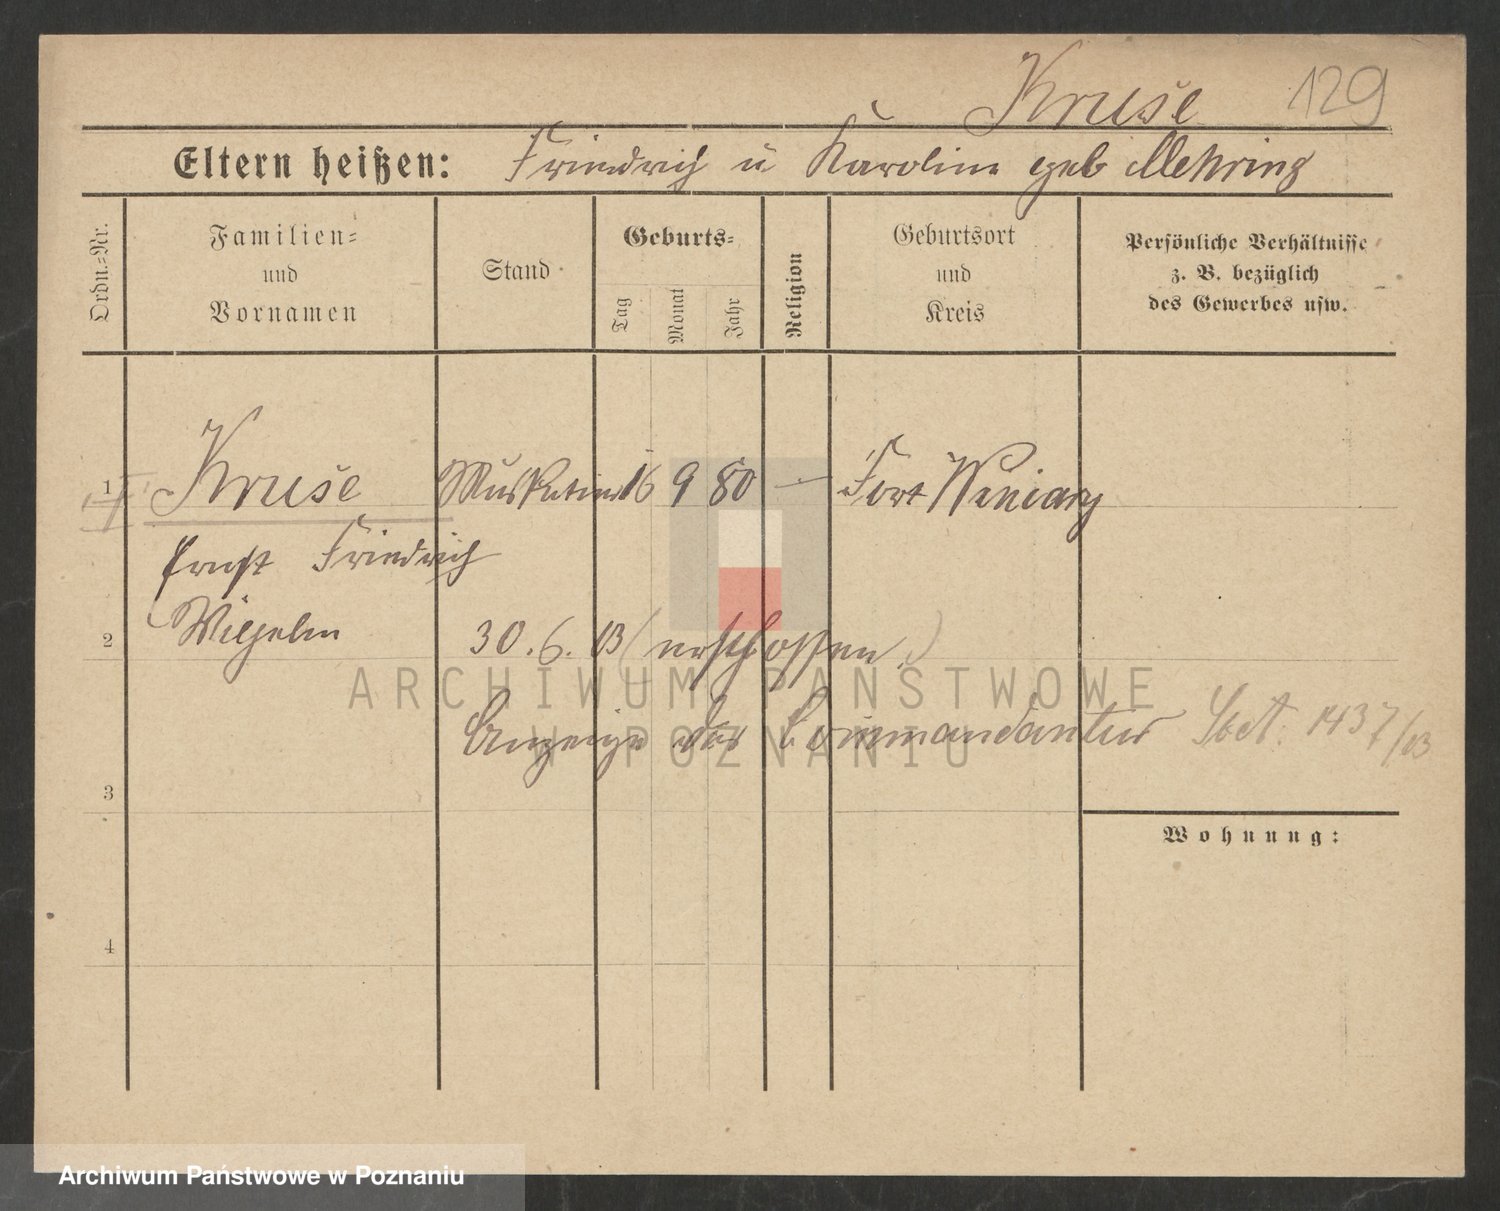 Kruse 129
Eltern heißen: Friedrich u Karoline geb Mehring
Ordn.-Nr.
Familien-
und
Vornamen
Stand
Geburts-
Tag
Monat
Jahr
Religion
Geburtsort
und
Kreis
Persönliche Verhältnisse
z. B. bezüglich
des Gewerbes usw.
1 Kruse Musketier 16 9 80 — Fort Winiary
Ernst Friedrich
2 Wilhelm 30.6.03 (erschossen.)
Anzeige der Commandantur 1437/03
3
Wohnung:
4
ARCHIWUM PAŃSTWOWE
W POZNANIU
Archiwum Państwowe w Poznaniu